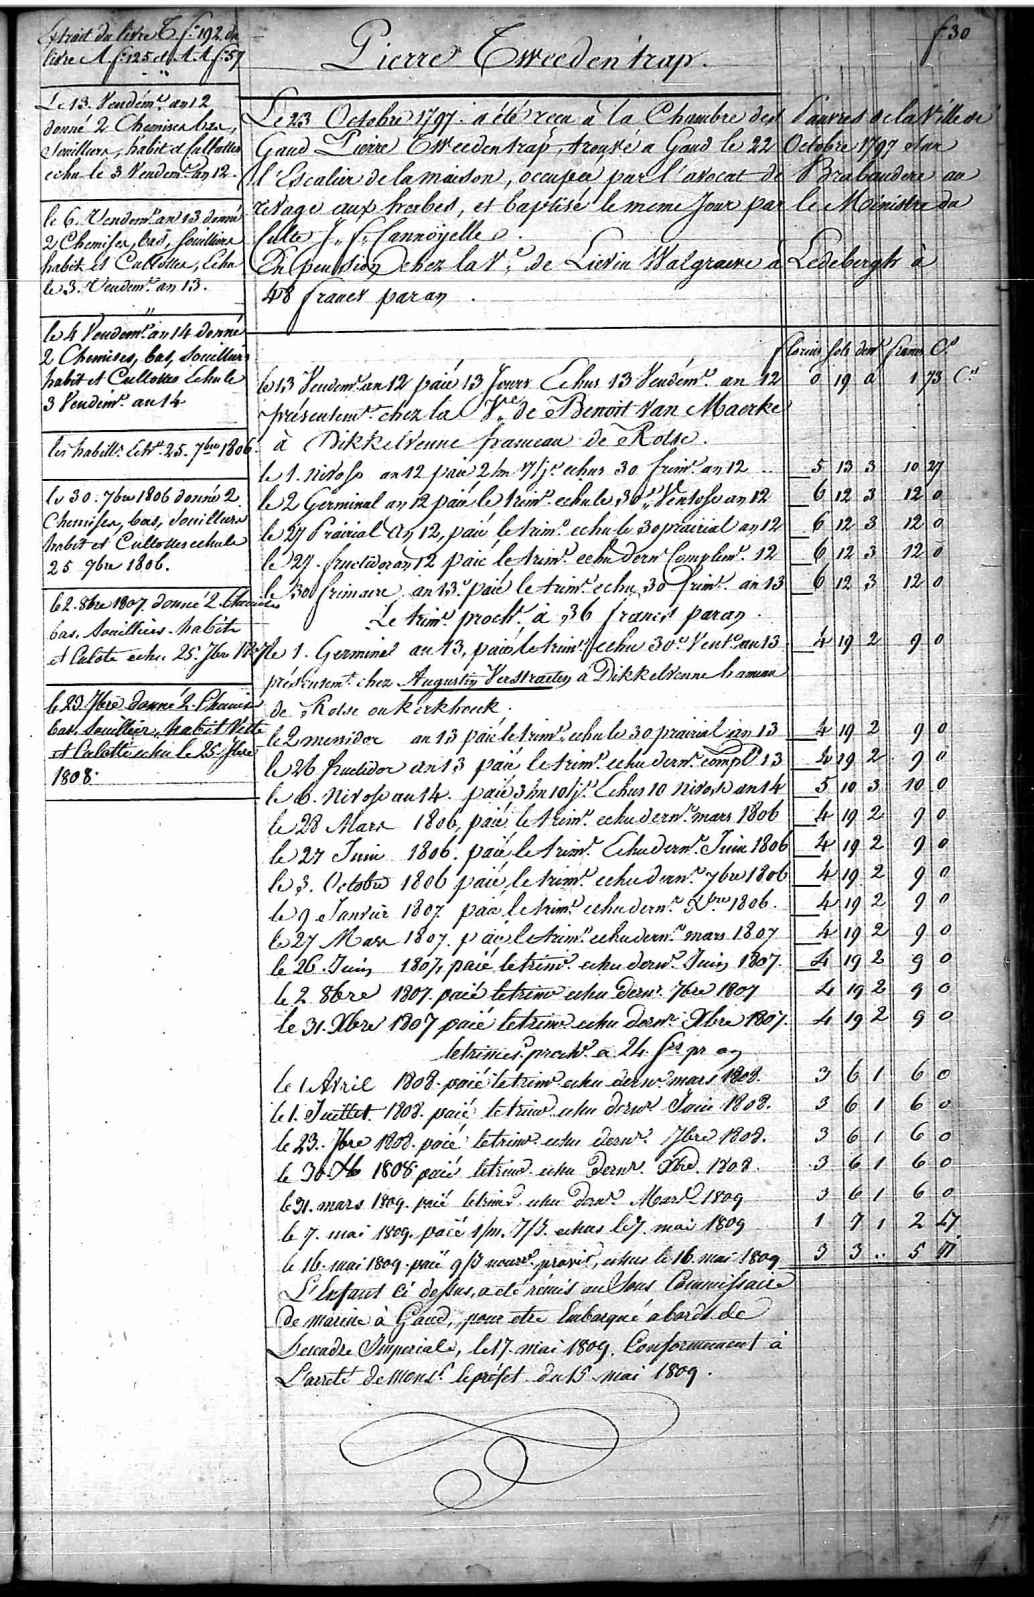 f 30
Pierre Tweedentrap.
Extrait du livre C fo. 192. du
livre A f. 125 et A.A f. 57
Le 13. Vendémre. an 12
donné 2 Chemises bas,
Souilliers, habit et Culottes
echu le 3 Vendemre. an 12.
le 6. Vendemre. an 13 donné
2 Chemises, bas, souilliers
habit et Culottes, Echu
le 3. Vendemre. an 13.
le 4 Vendemre. an 14 donné
2 Chemises, bas, Souilliers
habit et Culottes Echu le
3 Vendemre. an 14
les habillts. 25. 7bre 1806.
le 30. 7bre 1806 donné 2
Chemises, bas, Souilliers
habit et Culottes echu le
25 7bre 1806.
le 2. 8bre 1807. donné 2. Chemises
bas. Souilliers. habit
et Culote echu 25. 7bre 1807
le 23. 7bre donné 2. Chemises
bas. Souilliers. habit Veste
et Culotte echu le 25. 7bre
1808.
Le 23 Octobre 1797. a été reçu à la Chambre des Pauvres de la Ville de
Gand Pierre Tweedentrap, trouvé a Gand le 22 Octobre 1797 sur
l'Escalier de la maison, occupée par l'avocat de Brabandere au
rivage aux herbes, et baptisé le meme Jour par le Ministre du
Culte J. F. Cannoyelle.
En pension chez la Ve. de Lievin Walgraeve à Ledebergh à
48 francs par an.
florins sols denrs. francs Cs.
le 13 Vendemre. an 12 paié 13 Jours Echus 13 Vendémre. an 12 0 19 0 1 73 Cs
présentemt. chez la Ve. de Benoit van Maerke
à Dikkelvenne hameau de Rolse.
le 1. nivose an 12 paié 2 m 17 js. echus 30 frimre. an 12 5 13 3 10 27
le 2 Germinal an 12 paié le trimre. echu le 30e. Ventose an 12 6 12 3 12 0
le 27 Prairial an 12, paié le trimre. echu le 30 prairial an 12 6 12 3 12 0
le 29. fructidor an 12 paié le trimre. echu dernr. Complemre. 12 6 12 3 12 0
le 30 frimaire. an 13. paié le trimre. echu 30 frimre. an 13 6 12 3 12 0
Le trimre. prochn. à 36 francs par an.
le 1. Germinal an 13, paié le trimre. echu 30e. Vente. an 13 4 19 2 9 0
présentemt. chez Augustin Verstraeten à Dikkelvenne hameau
de Rolse ou Kerkhoek.
le 2 messidor an 13 paié le trimre. echu le 30 prairial an 13 4 19 2 9 0
le 26 fructidor an 13 paié le trimre. echu dernr. compl. 13 4 19 2 9 0
le 6. Nivose an 14. paié 3 m 10 js. Echus 10 nivose an 14 5 10 3 10 0
le 28 Mars 1806, paié le trimre. echu dernr. mars 1806 4 19 2 9 0
le 27 Juin 1806. paié le trimre. Echu dernr. Juin 1806 4 19 2 9 0
le 3. Octobre 1806 paié, le trimre. echu dernr. 7bre 1806 4 19 2 9 0
le 9 Janvier 1807. paié, le trimre. echu dernr. Xbre 1806. 4 19 2 9 0
le 27 Mars 1807. paié le trimre. echu dernr. mars 1807 4 19 2 9 0
le 26. Juin 1807, paié le trimre. echu dernr. Juin 1807. 4 19 2 9 0
le 2. 8bre 1807. paié le trimre echu dernr. 7bre 1807 4 19 2 9 0
le 31. Xbre 1807 paié le trimre echu dernr. Xbre 1807. 4 19 2 9 0
le trimes. prochn. a 24 frs pr an
le 1 Avril 1808. paié le trimre echu dernr. mars 1808. 3 6 1 6 0
le 1. Juillet. 1808. paié le trimre echu dernr Juin 1808. 3 6 1 6 0
le 23. 7bre 1808. paié le trimre echu dernr. 7bre 1808. 3 6 1 6 0
le 30 Xb 1808 paié le trimre echu dernr. Xbre. 1808. 3 6 1 6 0
le 31. mars 1809. paié le trimre echu dernr. Mars 1809 3 6 1 6 0
le 7. mai 1809. paié 1/m. 7/J. echus le 7. mai 1809 1 7 1 2 47
le 16. mai 1809. paié 9/J nourre. echus le 16. mai 1809 3 3 .. 5 71
L'Enfant ci dessus, a été remis au Sous Commissaire
de marine à Gand, pour etre Embarqué a bord de
L'escadre Imperiale, le 17. mai 1809. Conformement à
L'arreté de Monsr. le préfet du 15 mai 1809.